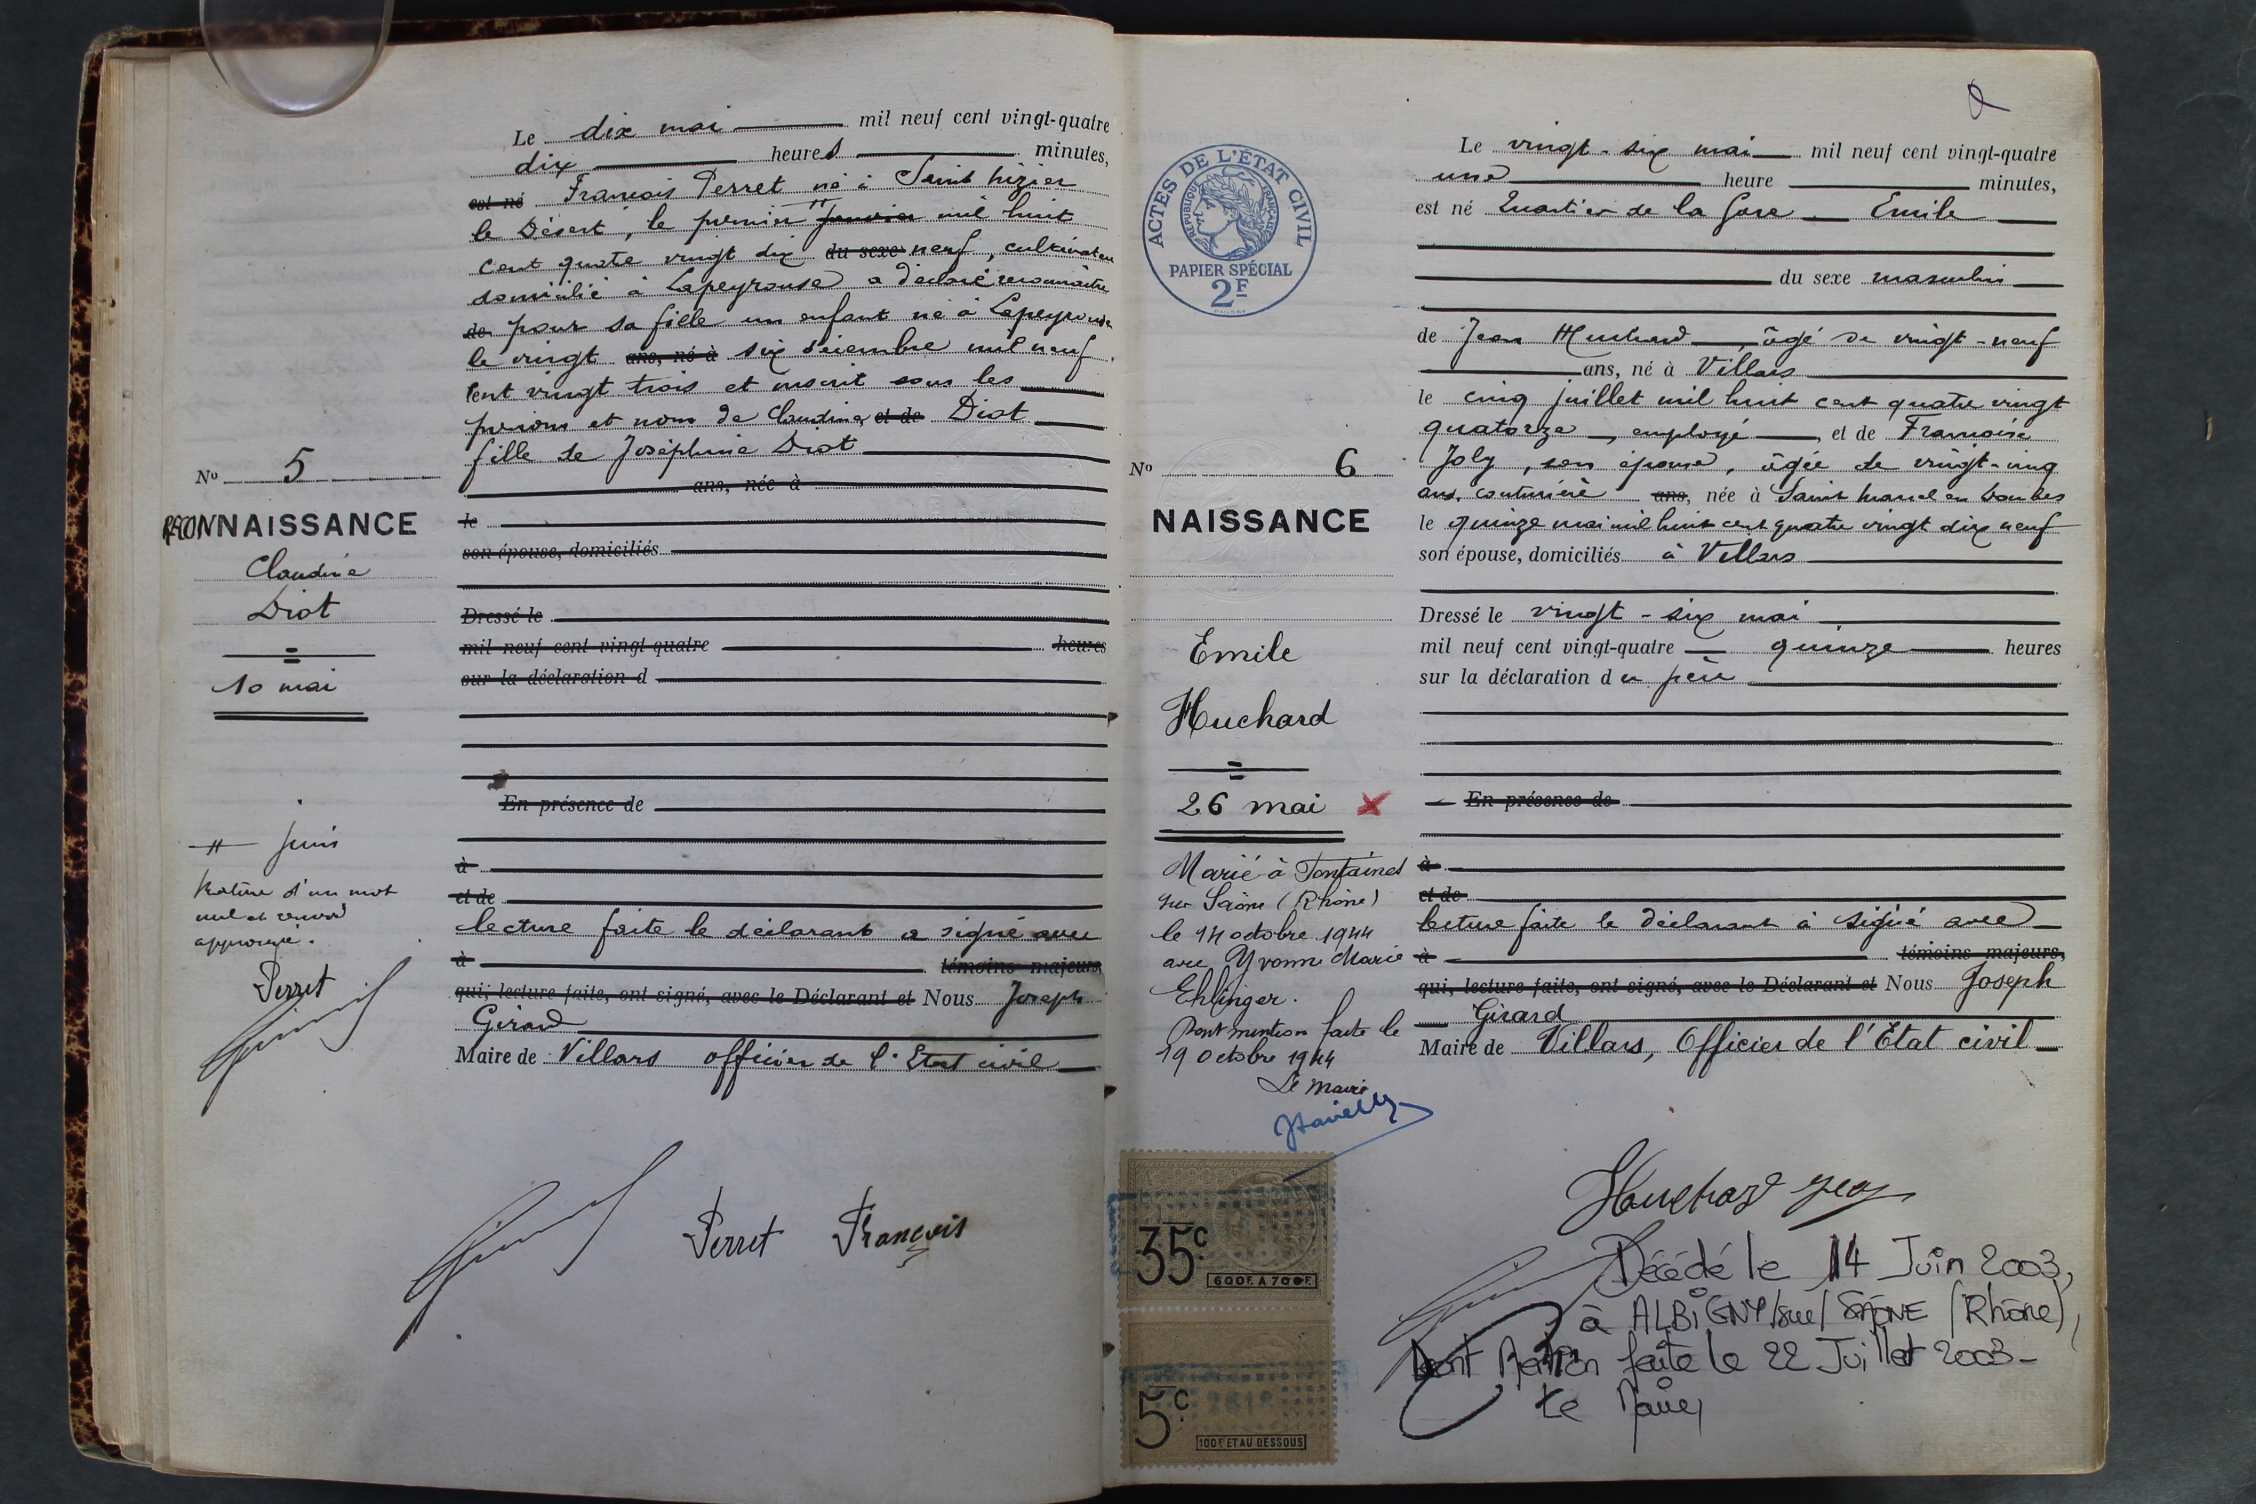 Le dix mai mil neuf cent vingt-quatre
dix heures minutes,
est né François Perret né à Saint Nizier
le Désert, le premier janvier mil huit
cent quatre vingt dix du sexe neuf, cultivateur
domicilié à Lapeyrouse a déclaré reconnaître
de pour sa fille un enfant né à Lapeyrouse
le vingt ans, né à six décembre mil neuf
cent vingt trois et inscrit sous les
prénom et nom de Claudine et de Diot
fille de Joséphine Diot
ans, née à
le
son épouse, domiciliés
Dressé le
mil neuf cent vingt-quatre heures
sur la déclaration d
En présence de
à
et de
lecture faite le déclarant a signé avec
à témoins majeurs,
qui, lecture faite, ont signé, avec le Déclarant et Nous Joseph
Girard
Maire de Villars officier de l'Etat civil
Perret François
No 5
RECONNAISSANCE
Claudine
Diot
10 mai
juin
Rature d'un mot
nul et renvoi
approuvé.
Perret
ACTES DE L'ÉTAT CIVIL
RÉPUBLIQUE FRANÇAISE
PAPIER SPÉCIAL
2F
No 6
NAISSANCE
Emile
Huchard
26 mai
Marié à Fontaines
sur Saône (Rhône)
le 14 octobre 1944
avec Yvonne Marie
Ehlinger.
Dont mention faite le
19 Octobre 1944
Le Maire
35c.
600F. A 700F.
5c.
100F. ET AU DESSOUS
Le vingt-six mai mil neuf cent vingt-quatre
une heure minutes,
est né Quartier de la Gare Emile
du sexe masculin
de Jean Huchard, âgé de vingt-neuf
ans, né à Villars
le cinq juillet mil huit cent quatre vingt
quatorze, employé, et de Françoise
Joly, son épouse, âgée de vingt-cinq
ans, couturière ans, née à Saint Marcel en Dombes
le quinze mai mil huit cent quatre vingt dix neuf
son épouse, domiciliés à Villars
Dressé le vingt-six mai
mil neuf cent vingt-quatre quinze heures
sur la déclaration du père
En présence de
à
et de
lecture faite le déclarant à signé avec
à témoins majeurs,
qui, lecture faite, ont signé, avec le Déclarant et Nous Joseph
Girard
Maire de Villars, Officier de l'Etat civil
Huchard
Décédé le 14 Juin 2003,
à ALBIGNY/sur/SAÔNE (Rhône),
Dont Mention faite le 22 Juillet 2003-
Le Maire,